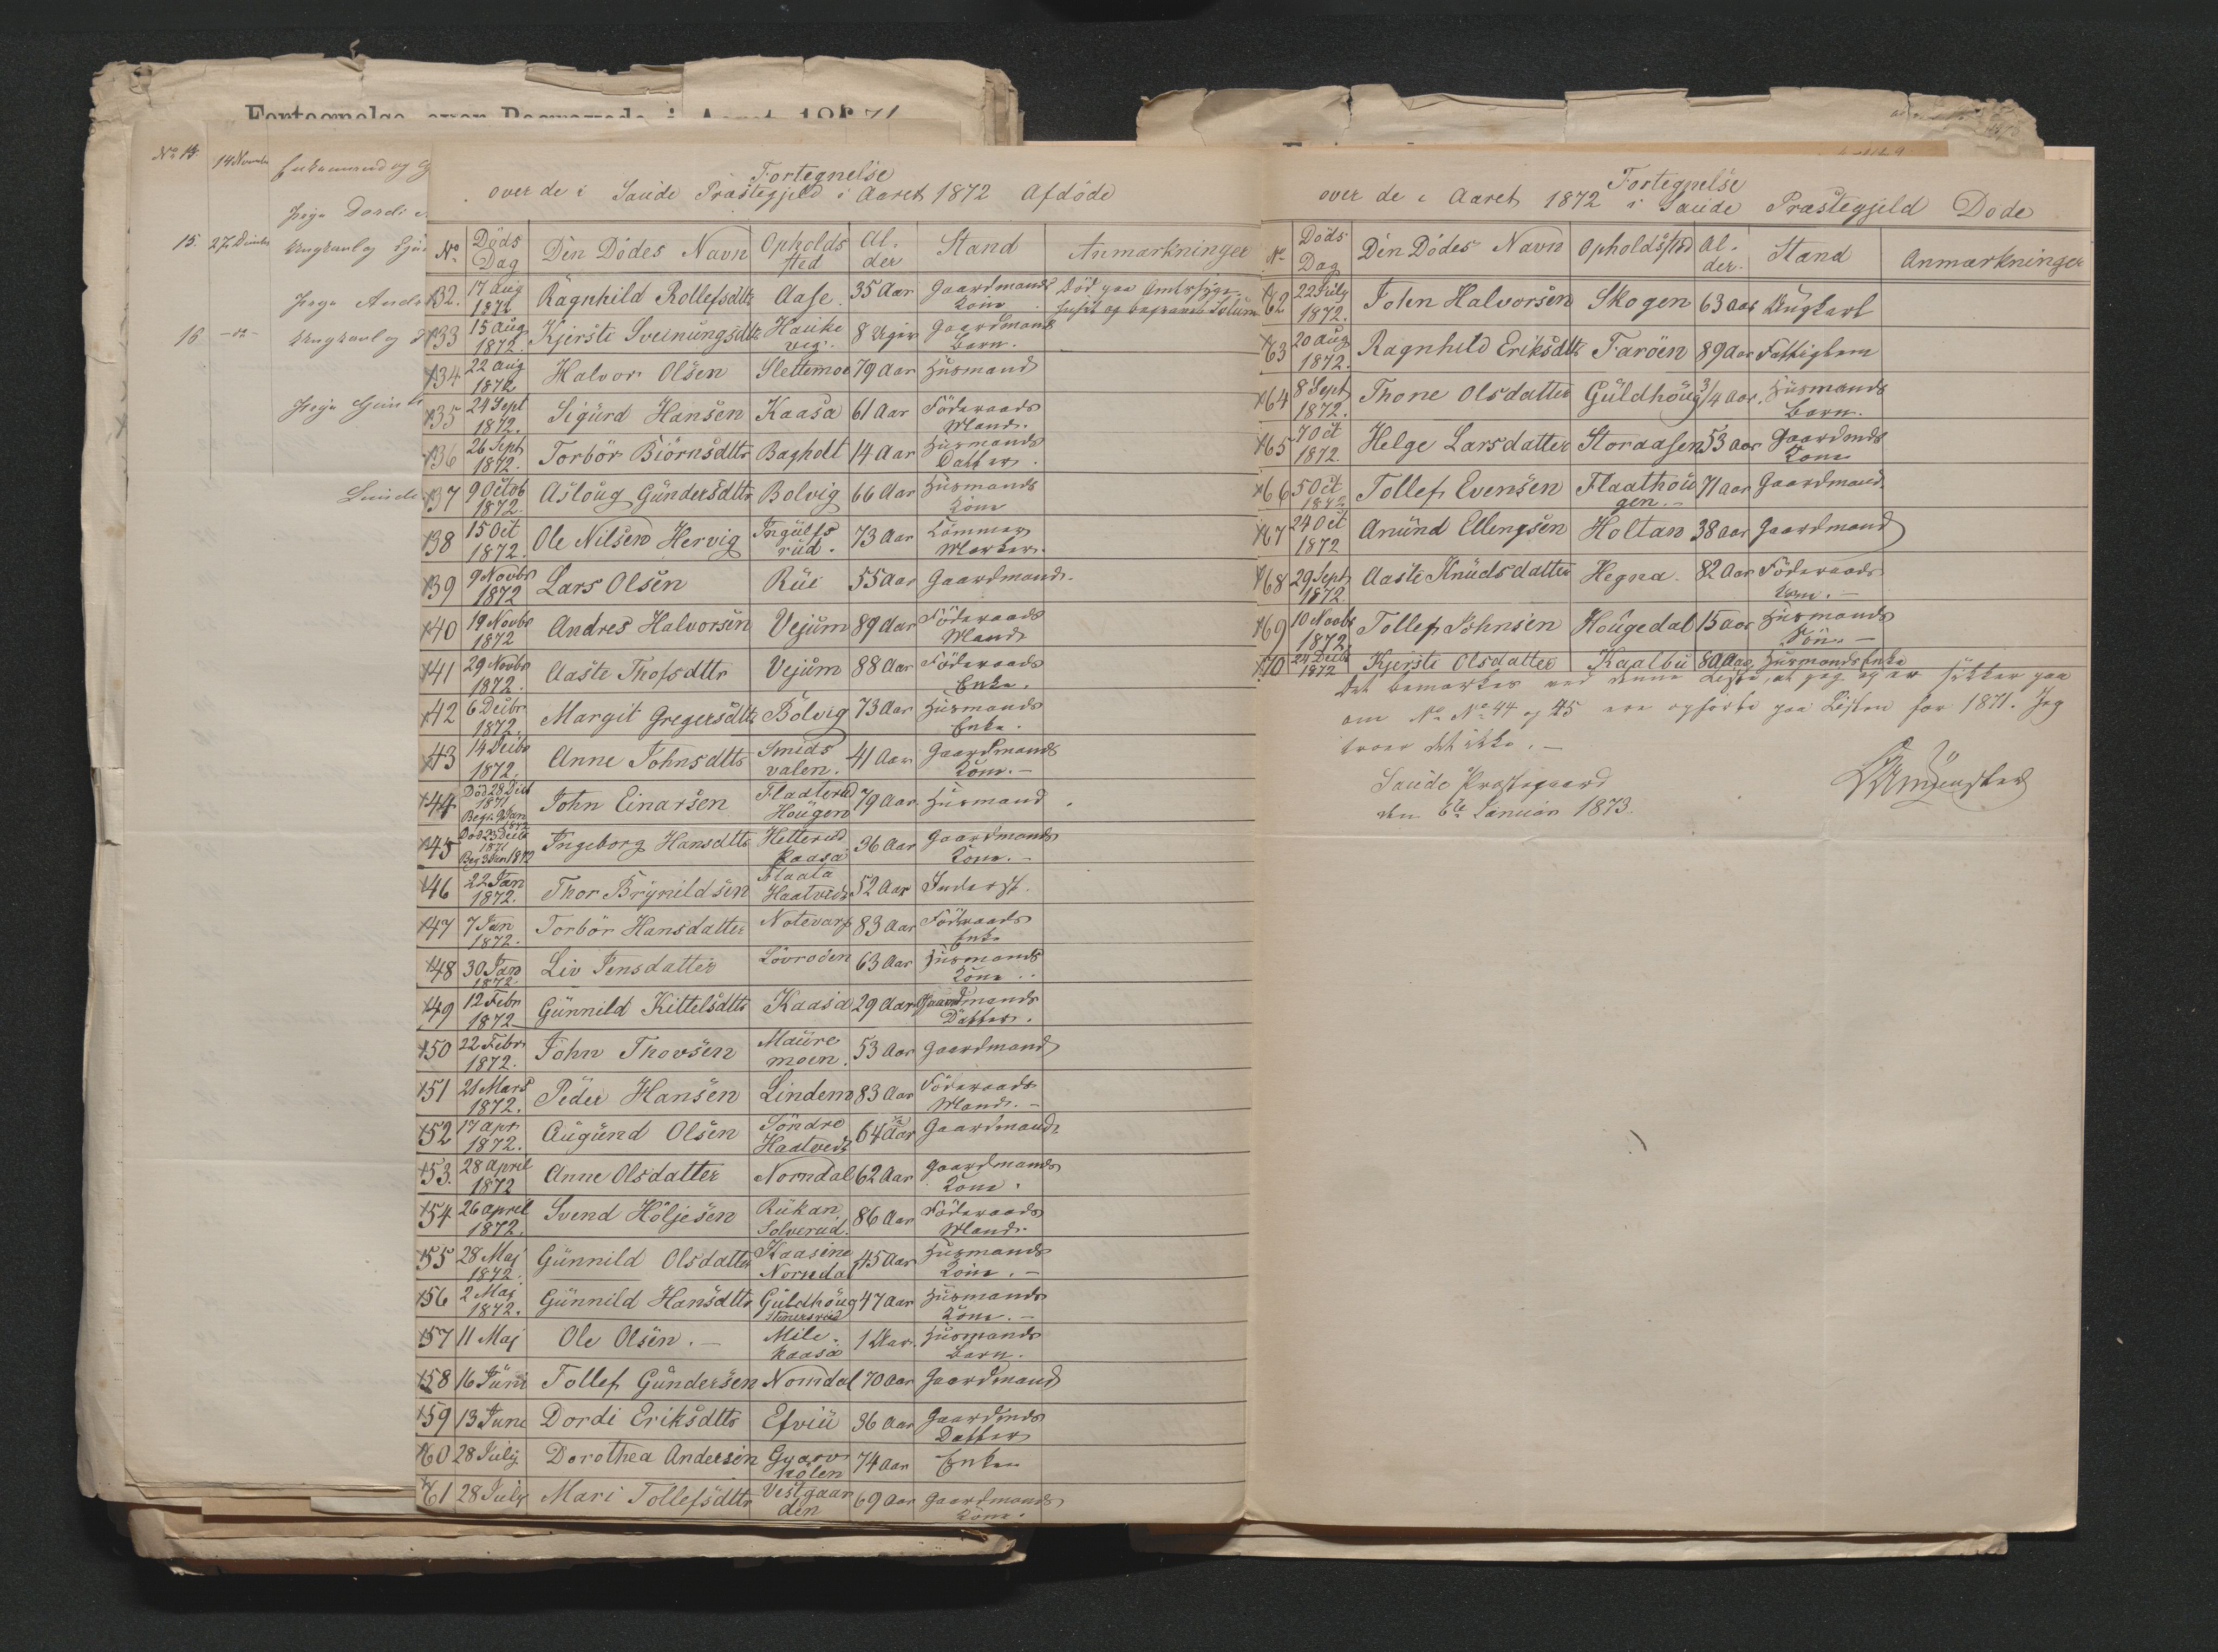 Fortegnelse over Begravede i Aaret 1871
No 14. 14 Novembr Enkemand og G
Pige Dordi
15. 27. Decmbr Ungkarl og
Pige Andr
16 -do- Ungkarl og
Pige Gun
Saude
Fortegnelse
over de i Saude Præstegjeld i Aaret 1872 Afdöde
No Döds Dag Den Dödes Navn Opholds sted Al- der Stand Anmærkninger
32. 17 Aug 1872 Ragnhild Rollefsdttr Aase 35 Aar Gaardmands Kone Död paa Amtssyge-
huset og begravet Solum
33 15 Aug 1872. Kjersti Sveinungsdttr Haukevig. 8 Uger Gaardmands Barn.
34 22 Aug 1872 Halvor Olsen Slettemoe 79 Aar Husmand
35 24 Sept 1872. Sigurd Hansen Kaasa 61 Aar Föderaads Mand.
36 26 Sept 1872. Torbör Biörnsdttr Bagholt 14 Aar Husmands Datter.
37 9 Octob 1872. Asloug Gundersdttr Bolvig 66 Aar Husmands Kone
38 15 Oct 1872. Ole Nilsen Hervig Ingulfsrud. 73 Aar Tömmer Mærker.
39 9 Novbr 1872 Lars Olsen Rue 55 Aar Gaardmand.
40 19 Novbr 1872 Andres Halvorsen Vejum 89 Aar Föderaads Mand
41 29 Novbr 1872. Aaste Thofsdttr Vejum 88 Aar Föderaads Enke.
42 6 Decbr 1872. Margit Gregersdttr Bolvig 73 Aar Husmands Enke.
43 14 Decbr 1872. Anne Johnsdttr Smidsvalen. 41 Aar Gaardmands Kone.-
44 Död 28 Decb 1871 Begr. 9 Jan 1872 John Einarsen Flaaterud Hougen 79 Aar Husmand.
45 Död 23 Decbr 1871 Beg 3 Jan 1872 Ingeborg Hansdttr Hetterud Kaasa 36 Aar Gaardmands Kone.-
46 22 Jan 1872. Thor Brynildsen Flaata Haatvedt 52 Aar Inderst.
47 7 Jan 1872. Torbör Hansdatter Notevarp 83 Aar Föderaads Enke
48 30 Jan 1872 Liv Jensdatter Lövroden 63 Aar Husmands Kone..
49 12 Febr 1872 Gunnild Kittelsdttr Kaasa 29 Aar Gaardmands Datter.
50 22 Febr 1872. John Thovsen Mauremoen. 53 Aar Gaardmand
51 21 Mars 1872. Peder Hansen Lindem 83 Aar Föderaads Mand.-
52 17 Apr 1872. Augund Olsen Söndre Haatvedt 64 Aar Gaardmand.
53. 28 April 1872 Anne Olsdatter Nomdal 62 Aar Gaardmands Kone.
54 26 April 1872. Svend Höljesen Rukan Solverud. 86 Aar Föderaads Mand.
55 28 Maj 1872. Gunnild Olsdatter Kaasine Nomdal 45 Aar Husmands Kone.-
56 2 Maj 1872. Gunnild Hansdttr Guldhoug 47 Aar Husmands Kone.-
57 11 Maj Ole Olsen.- Mile. Kaasa 1 Aar. Husmands Barn.
58 16 Juni Tollef Gundersen Nomdal 70 Aar Gaardmand
59 13 Juni Dordi Eriksdttr Efviu 36 Aar Gaardmds Datter
60 28 July Dorothea Andersen 74 Aar Enke
61 28 July Mari Tollefsdttr Vestgaarden 69 Aar Gaardmands Kone.
Fortegnelse
over de i Aaret 1872 i Saude Præstegjeld Döde
No Döds Dag Den Dödes Navn Opholdssted Al- der. Stand Anmærkninger
62 22 July 1872. John Halvorsen Skogen 63 Aar Ungkarl
63 20 Aug 1872. Ragnhild Eriksdttr Faröen 89 Aar Fattiglem
64 8 Sept 1872. Thone Olsdatter Guldhoug 3/4 Aar. Husmands Barn.
65 7 Oct 1872. Helge Larsdatter Storaasen 53 Aar Gaardmds Kone
66 5 Oct 1872 Tollef Evensen Flaathougen.- 71 Aar Gaardmand.
67 24 Oct 1872 Anund Ellengsen Holtan 38 Aar Gaardmand
68 29 Sept 1872. Aaste Knudsdatter Hegna. 82 Aar Föderaads Kone.-
69 10 Novbr 1872 Tollef Johnsen Hougedal 15 Aar Husmands Sön.-
70 24 Decbr 1872 Kjersti Olsdatter Kaalbu 80 Aar Husmands Enke
Det bemærkes ved denne Liste, at jeg ej er sikker paa
om No No 44 og 45 ere opförte paa Listen for 1871. Jeg
troer det ikke.-
Saude Præstegaard
den 6te Januar 1873.